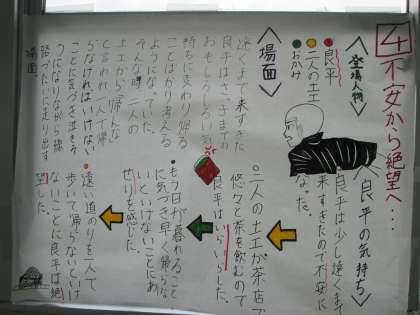 4不安から絶望へ…
〈登場人物〉
良平
二人の土工
おかみ
〈場面〉
遠くまで来すぎた
良平はさっきまでの
おもしろしろい気
持ちにまわり帰る
ことばかり考える
ようになっていた。
そんな時、二人の
土工から「帰んな」
と言われ一人で帰
らなければいけない
ことに気づき泣きそ
うになりながら線
路づたいに走り出す
場面
〈良平の気持ち〉
良平は少し遠くまで
来すぎたので不安に
なった。
二人の土工が茶店で
悠々と茶を飲むので
良平はいらいらした。
もう日が暮れること
に気づき早く帰らな
いといけないことにあ
せりを感じた。
遠い道のりを一人で
歩いて帰らないといけ
ないことに良平は絶
望した。